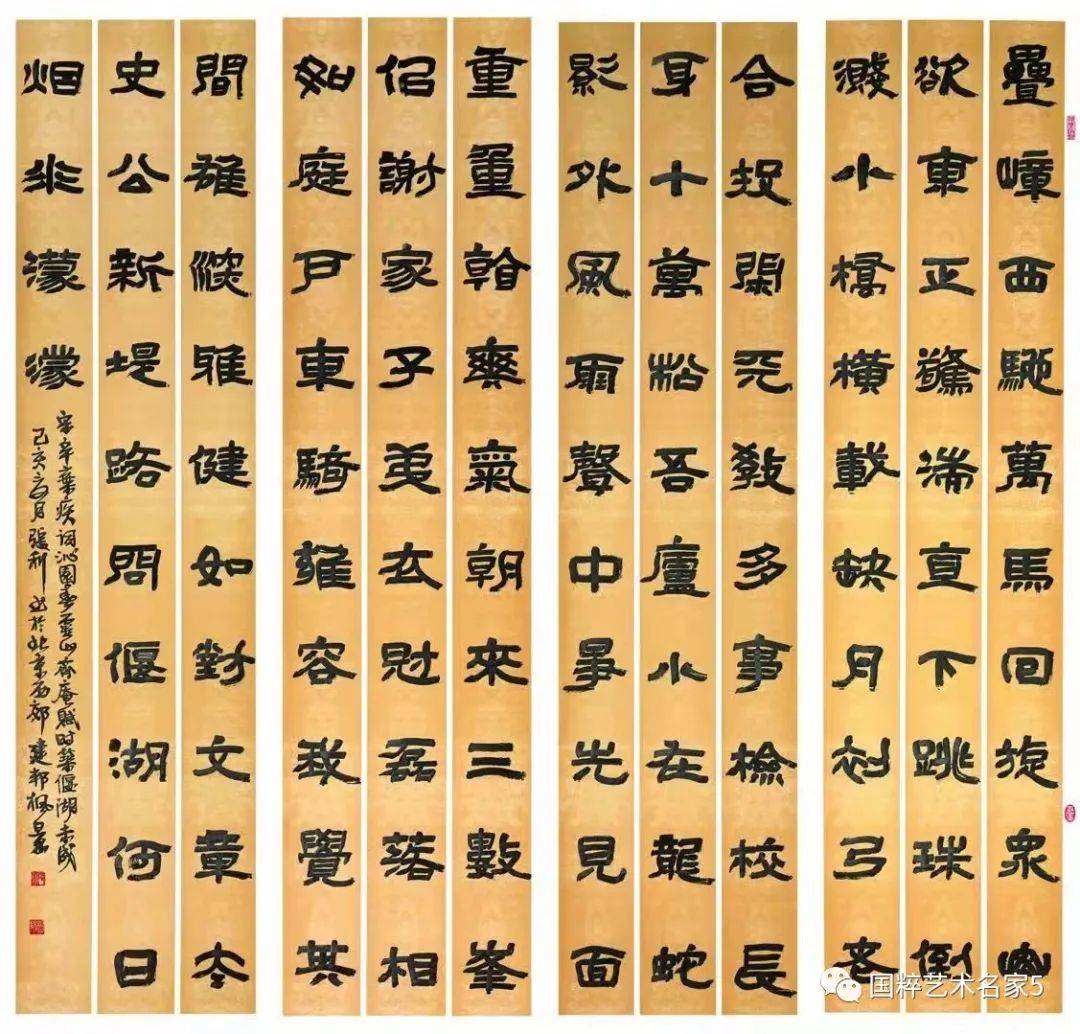 疊嶂西馳萬馬回旋眾山
欲東正驚湍直下跳珠倒
濺小橋橫截缺月初弓老
合投閑天教多事檢校長
身十萬松吾廬小在龍蛇
影外風雨聲中爭先見面
重重看爽氣朝來三數峯
似謝家子弟衣冠磊落相
如庭戶車騎雍容我覺其
間雄深雅健如對文章太
史公新堤路問偃湖何日
烟水濛濛
宋辛棄疾詞沁園春靈山齊庵賦時築偃湖未成
己亥六月張利書於北京西郊建邦楓景
国粹艺术名家5